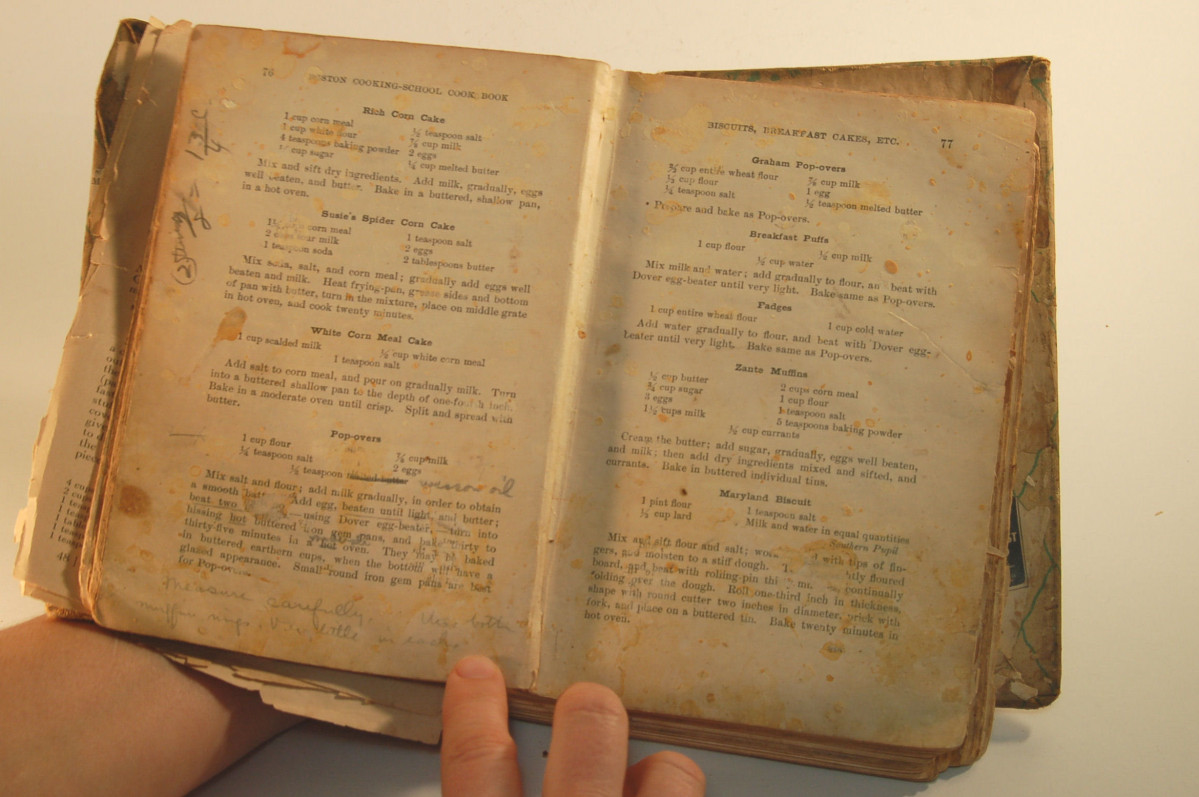 76
BOSTON COOKING-SCHOOL COOK BOOK
Rich Corn Cake
1 cup corn meal
1 cup white flour
4 teaspoons baking powder
cup sugar
½ teaspoon salt
⅞ cup milk
2 eggs
¼ cup melted butter
Mix and sift dry ingredients. Add milk, gradually, eggs
well beaten, and butter. Bake in a buttered, shallow pan,
in a hot oven.
Susie's Spider Corn Cake
corn meal
2 sour milk
1 teaspoon soda
1 teaspoon salt
2 eggs
2 tablespoons butter
Mix soda, salt, and corn meal; gradually add eggs well
beaten and milk. Heat frying-pan, grease sides and bottom
of pan with butter, turn in the mixture, place on middle grate
in hot oven, and cook twenty minutes.
White Corn Meal Cake
1 cup scalded milk
½ cup white corn meal
1 teaspoon salt
Add salt to corn meal, and pour on gradually milk. Turn
into a buttered shallow pan to the depth of one-fourth inch.
Bake in a moderate oven until crisp. Split and spread with
butter.
Pop-overs
1 cup flour
¼ teaspoon salt
⅞ cup milk
2 eggs
½ teaspoon wesson oil
Mix salt and flour; add milk gradually, in order to obtain
a smooth Add egg, beaten until light, and butter;
beat two —using Dover egg-beater,—turn into
hissing hot buttered iron gem pans, and bake thirty to
thirty-five minutes in a hot oven. They may be baked
in buttered earthern cups, when the bottom will have a
glazed appearance. Small round iron gem pans are best
for Pop-overs.
Measure carefully.
muffin rings
77
BISCUITS, BREAKFAST CAKES, ETC.
Graham Pop-overs
⅔ cup entire wheat flour
⅓ cup flour
¼ teaspoon salt
⅞ cup milk
1 egg
½ teaspoon melted butter
Prepare and bake as Pop-overs.
Breakfast Puffs
1 cup flour
½ cup milk
½ cup water
Mix milk and water; add gradually to flour, and beat with
Dover egg-beater until very light. Bake same as Pop-overs.
Fadges
1 cup entire wheat flour
1 cup cold water
Add water gradually to flour, and beat with Dover egg-
beater until very light. Bake same as Pop-overs.
Zante Muffins
½ cup butter
¾ cup sugar
3 eggs
1½ cups milk
2 cups corn meal
1 cup flour
1 teaspoon salt
5 teaspoons baking powder
½ cup currants
Cream the butter; add sugar, gradually, eggs well beaten,
and milk; then add dry ingredients mixed and sifted, and
currants. Bake in buttered individual tins.
Maryland Biscuit
1 pint flour
⅓ cup lard
1 teaspoon salt
Milk and water in equal quantities
Southern Pupil
Mix and sift flour and salt; work with tips of fin-
gers, and moisten to a stiff dough. floured
board, and beat with rolling-pin continually
folding over the dough. Roll one-third inch in thickness,
shape with round cutter two inches in diameter, prick with
fork, and place on a buttered tin. Bake twenty minutes in
hot oven.